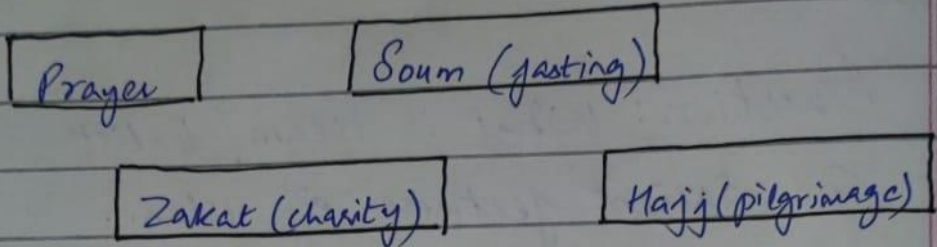 Prayer
Soum (fasting)
Zakat (charity)
Hajj (pilgrimage)